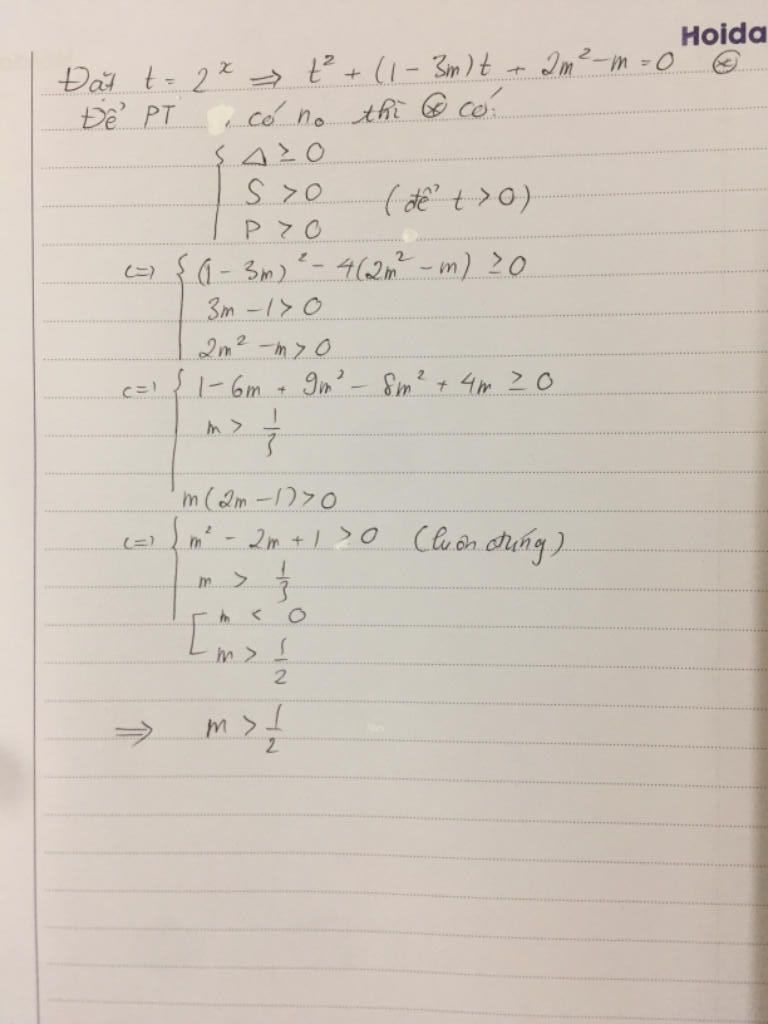 Hoida
Đặt t = 2^x ⇒ t² + (1 - 3m)t + 2m² - m = 0 (*)
Để PT có n₀ thì (*) có:
{ Δ ≥ 0
S > 0 (để t > 0)
P > 0
<=> { (1 - 3m)² - 4(2m² - m) ≥ 0
3m - 1 > 0
2m² - m > 0
<=> { 1 - 6m + 9m² - 8m² + 4m ≥ 0
m > 1/3
m(2m - 1) > 0
<=> { m² - 2m + 1 ≥ 0 (luôn đúng)
m > 1/3
[ m < 0
m > 1/2
⇒ m > 1/2